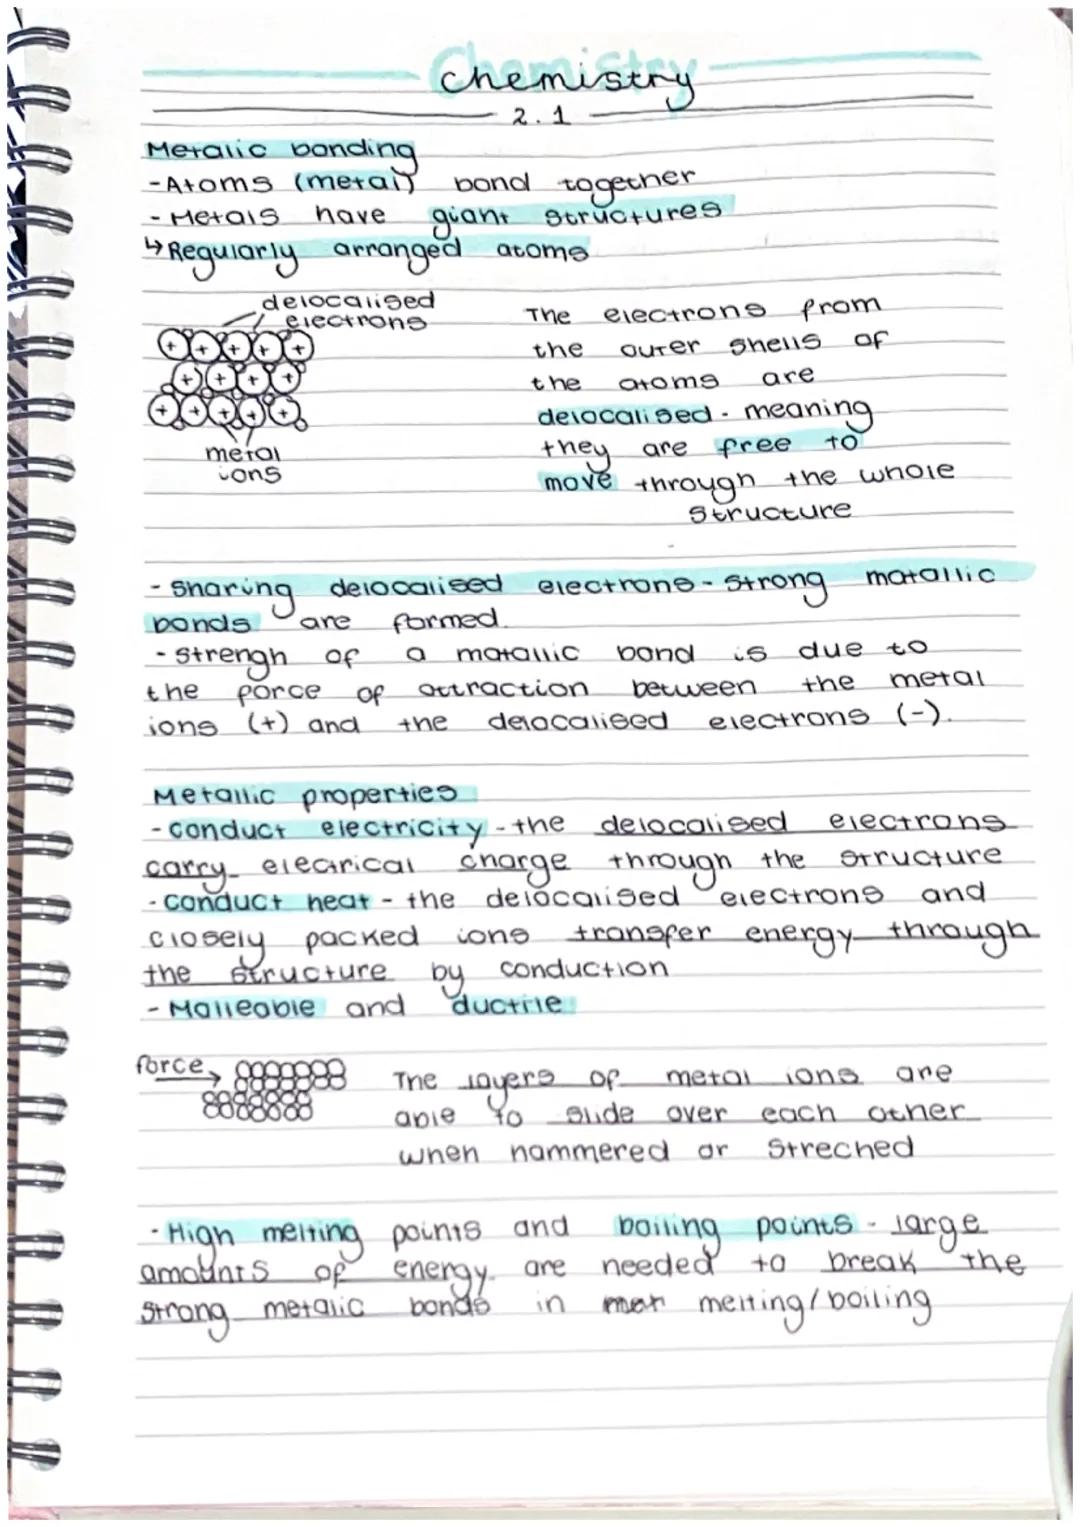 Chemistry
chemistry
2.1
Metalic bonding
-Atoms (metal) bond together
- Metals have giant structures
↳ Regularly arranged atoms
delocalised
electrons
metal
ions
The electrons from
the outer shells of
the atoms are
delocalised - meaning
they are free to
move through the whole
structure
- Sharing delocalised electrons - strong matallic
bonds are formed.
- strengh of a matallic bond is due to
the force of attraction between the metal
ions (+) and the delocalised electrons (-).
Metallic properties
- conduct electricity - the delocalised electrons
carry elecrical charge through the structure
- conduct heat - the delocalised electrons and
closely packed ions transfer energy through
the structure by conduction
- Malleable and ductile
force
The layers of metal ions are
able to slide over each other
when hammered or streched
- High melting points and boiling points - large
amounts of energy are needed to break the
strong metalic bonds in melting/boiling